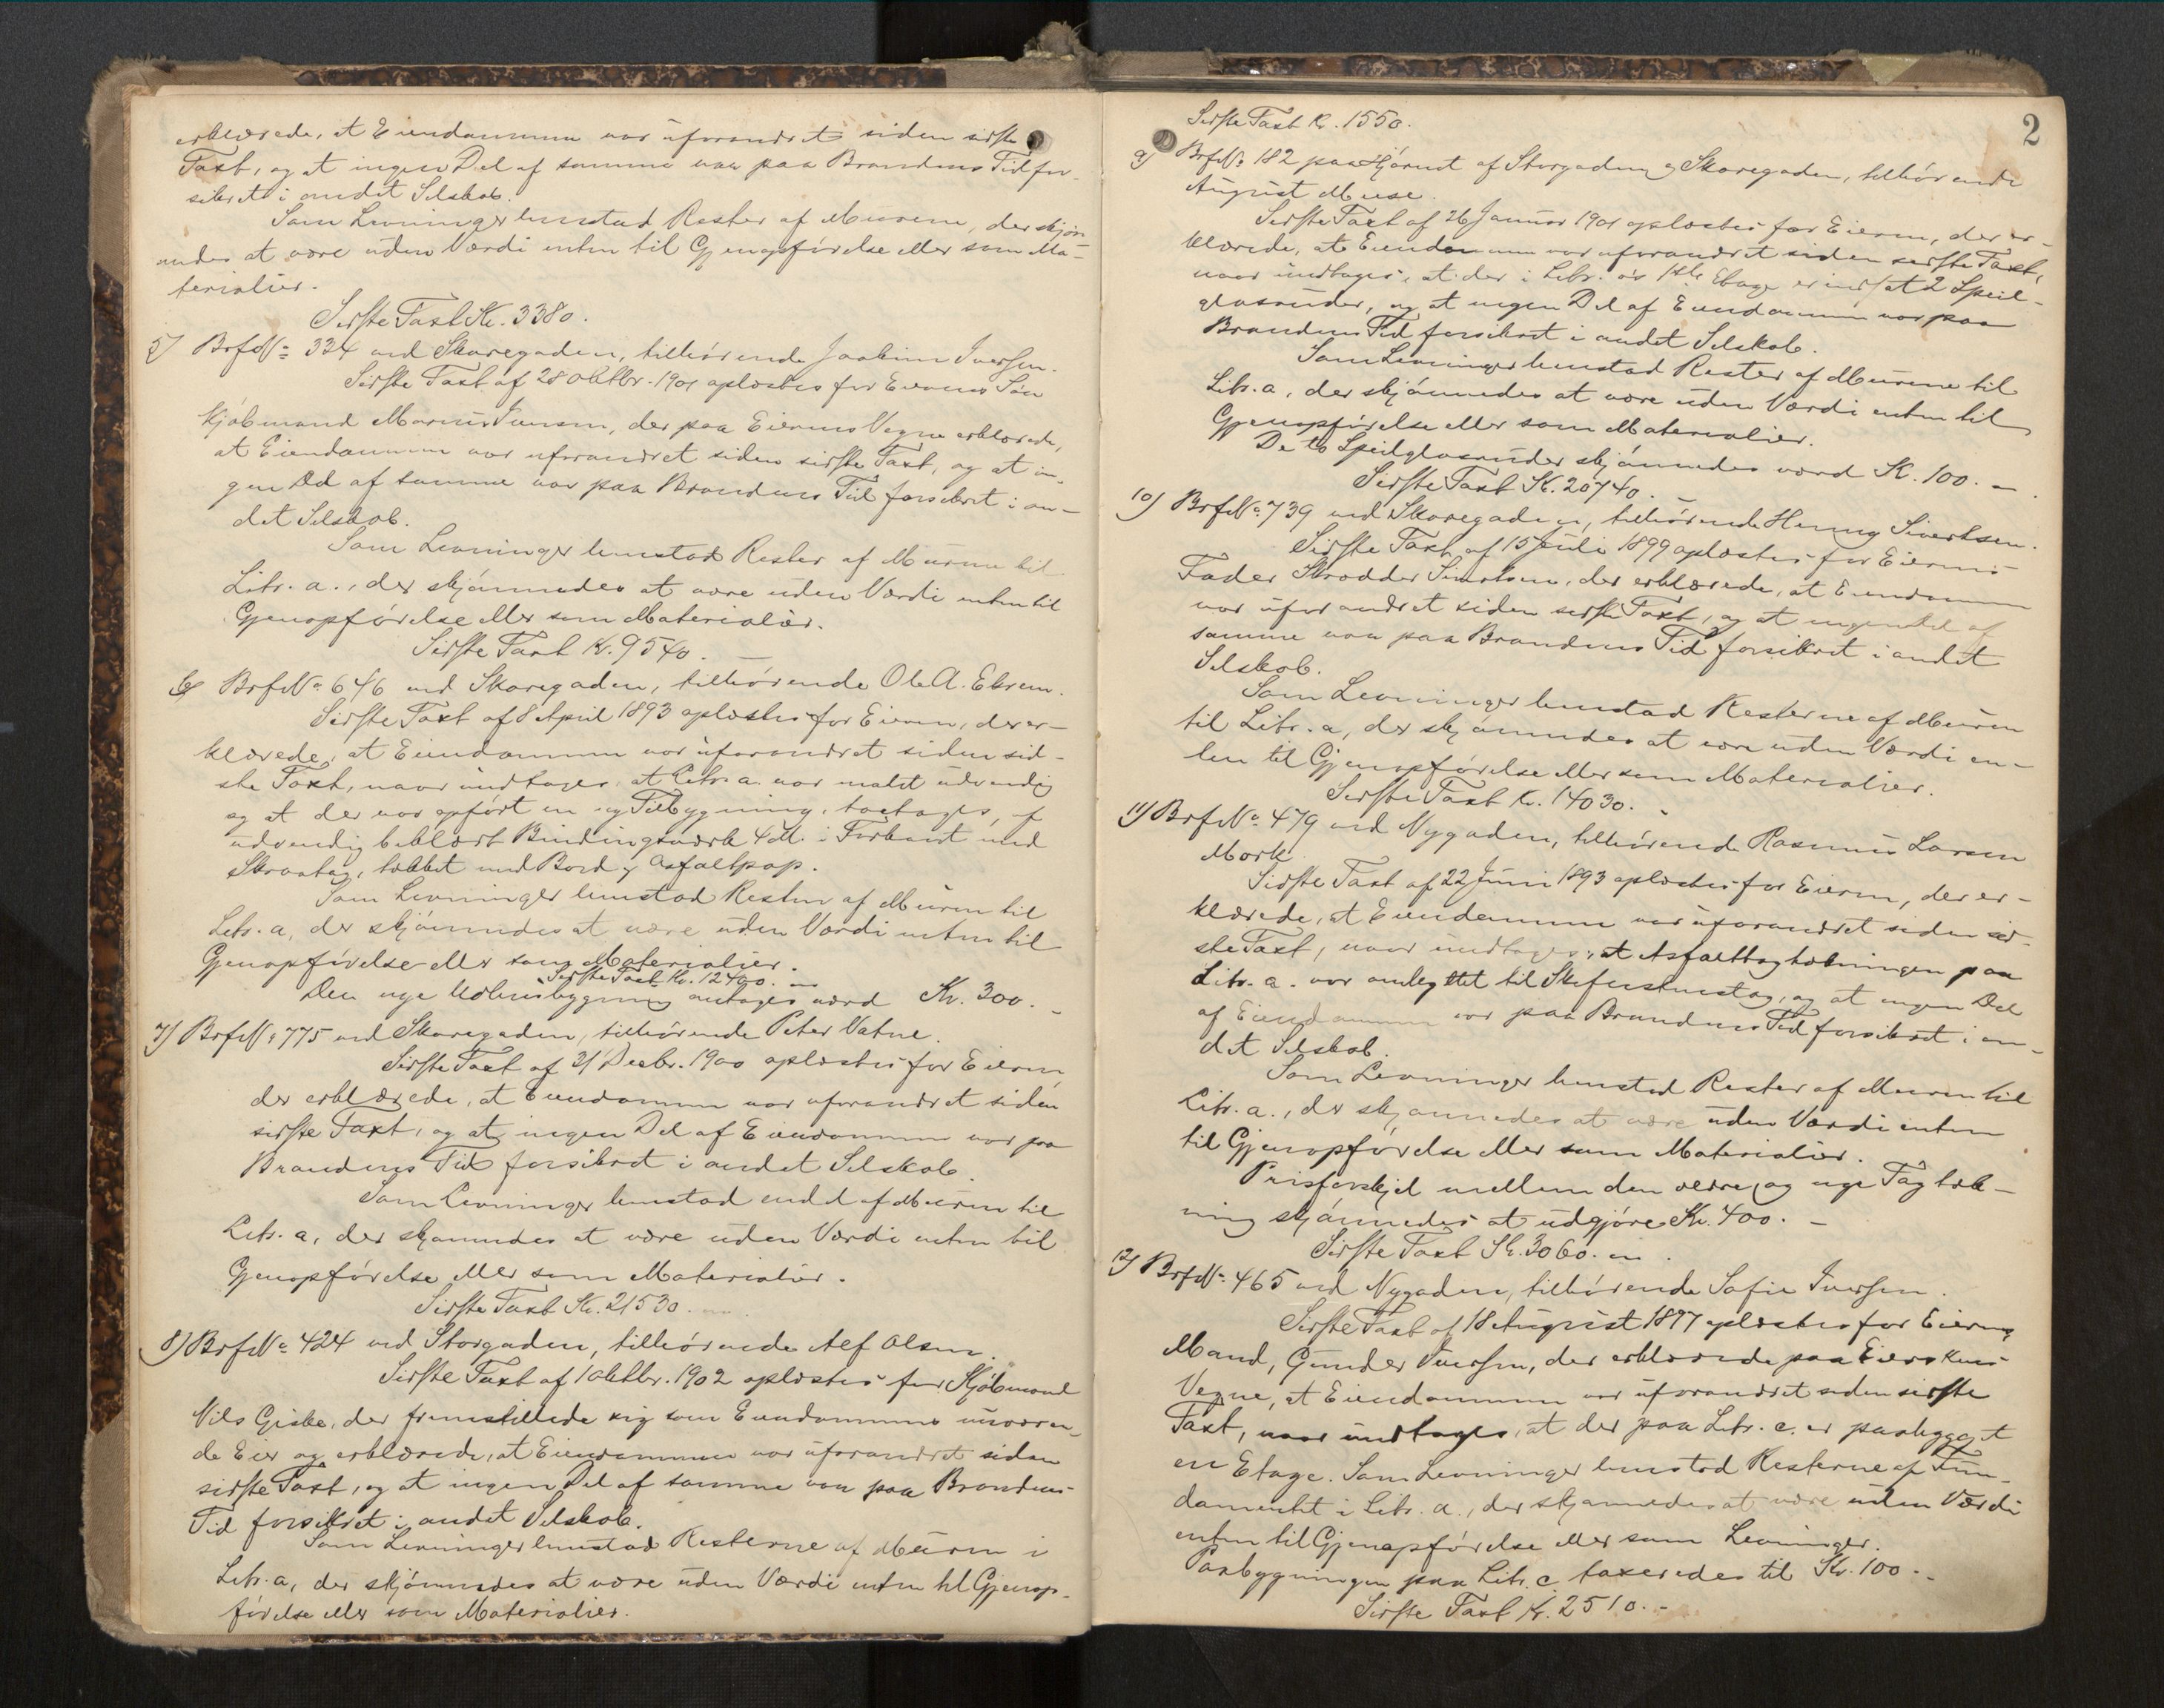 erklærede, at Eiendommen var uforandret siden sidste
Taxt, og at ingen Del af samme var paa Brandens Tid for-
sikret i andet Selskab.
Som Levninger henstod Rester af Murene, der skjøn-
nedes at være uden Værdi enten til Gjenopførelse eller som Ma-
terialier.
Sidste Taxt Kr. 3380.
5) Brf№ 334 ved Skaregaden, tilhørende Joakim Iversen.
Sidste Taxt af 28 Oktbr. 1901 oplæstes for Eierens Søn
Kjøbmand Marius Iversen, der paa Eierens Vegne erklærede,
at Eiendommen var uforandret siden sidste Taxt, og at in-
gen Del af samme var paa Brandens Tid forsikret i an-
det Selskab.
Som Levninger henstod Rester af Murene til
Litr. a., der skjønnedes at være uden Værdi enten til
Gjenopførelse eller som Materialier.
Sidste Taxt Kr. 9540. —
6) Brf№ 646 ved Skaregaden, tilhørende Ole A. Ekrem.
Sidste Taxt af 8 April 1893 oplæstes for Eieren, der er-
klærede, at Eiendommen var uforandret siden sid-
ste Taxt, naar undtages at Litr. a. var malet udvendig
og at der var opført en ny Tilbygning, toetages, af
udvendig beklædt Bindingsværk 4 M. i Firkant med
Skraatag, tækket med Bord og Asfaltpap.
Som Levninger henstod Resten af Muren til
Litr. a, der skjønnedes at være uden Værdi enten til
Gjenopførelse eller som Materialier.
Sidste Taxt Kr. 12400. —
Den nye Udhusbygning antages værd Kr. 300. —
7) Brf№ 775 ved Skaregaden, tilhørende Peter Vatne.
Sidste Taxt af 21 Decbr. 1900 oplæstes for Eieren,
der erklærede, at Eiendommen var uforandret siden
sidste Taxt, og at ingen Del af Eiendommen var paa
Brandens Tid forsikret i andet Selskab.
Som Levninger henstod endel af Muren til
Litr. a, der skjønnedes at være uden Værdi enten til
Gjenopførelse eller som Materialier.
Sidste Taxt Kr. 21530. —
8) Brf№ 424 ved Storgaden, tilhørende Alf Olsen.
Sidste Taxt af 1 Oktbr. 1902 oplæstes for Kjøbmand
Nils Giske, der fremstillede sig som Eiendommens nuværen-
de Eier og erklærede, at Eiendommen var uforandret siden
sidste Taxt, og at ingen Del af samme var paa Brandens
Tid forsikret i andet Selskab.
Som Levninger henstod Resterne af Muren i
Litr. a, der skjønnedes at være uden Værdi enten til Gjenop-
førelse eller som Materialier.
2
Sidste Taxt Kr. 1550.
9) Brf№ 182 paa Hjørnet af Storgaden og Skaregaden, tilhørende
August Muse.
Sidste Taxt af 26 Januar 1901 oplæstes for Eieren, der er-
klærede, at Eiendommen var uforandret siden sidste Taxt,
naar undtages, at der i Litr. a's 1ste Etage er indsat 2 Speil-
glasruder, og at ingen Del af Eiendommen var paa
Brandens Tid forsikret i andet Selskab.
Som Levninger henstod Rester af Murene til
Litr. a, der skjønnedes at være uden Værdi enten til
Gjenopførelse eller som Materialier.
De to Speilglasruder skjønnedes værd Kr. 100. —
Sidste Taxt Kr. 20740. —
10) Brf№ 739 ved Skaregaden, tilhørende Henny Sivertsen.
Sidste Taxt af 15 Juli 1899 oplæstes for Eierens
Fader Skrædder Sivertsen, der erklærede, at Eiendommen
var uforandret siden sidste Taxt, og at ingen Del af
samme var paa Brandens Tid forsikret i andet
Selskab.
Som Levninger henstod Resterne af Muren
til Litr. a, der skjønnedes at være uden Værdi en-
ten til Gjenopførelse eller som Materialier.
Sidste Taxt Kr. 14030. —
11) Brf№ 479 ved Nygaden, tilhørende Rasmus Larsen
Mork.
Sidste Taxt af 22 Juni 1893 oplæstes for Eieren, der er-
klærede, at Eiendommen var uforandret siden sid-
ste Taxt, naar undtages, at Asfalttagtækningen paa
Litr. a. var omlagt til Skiferstenstag, og at ingen Del
af Eiendommen var paa Brandens Tid forsikret i an-
det Selskab.
Som Levninger henstod Rester af Muren til
Litr. a., der skjønnedes at være uden Værdi enten
til Gjenopførelse eller som Materialier.
Prisforskjel mellem den ældre og nye Tagtæk-
ning skjønnedes at udgjøre Kr. 400. —
Sidste Taxt Kr. 3060. —
12) Brf№ 465 ved Nygaden, tilhørende Sofie Iversen.
Sidste Taxt af 18 August 1897 oplæstes for Eierens
Mand, Gunder Iversen, der erklærede paa Eierskens
Vegne, at Eiendommen var uforandret siden sidste
Taxt, naar undtages, at der paa Litr. c. er paabygget
en Etage. Som Levninger henstod Resterne af Fun-
damentet i Litr. a., der skjønnedes at være uden Værdi
enten til Gjenopførelse eller som Levninger.
Paabygningen paa Litr. c taxeredes til Kr. 100. —
Sidste Taxt Kr. 2510. —